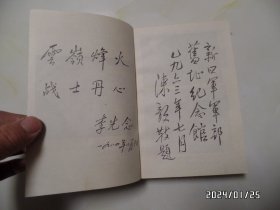 雲嶺烽火
战士丹心
李先念
新四軍軍部
舊址紀念館
一九六三年七月
陳毅敬題
2024/01/25